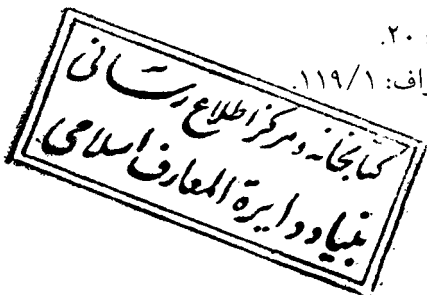 : ٢٠.
اف: ١١٩/١.
کتابخانه و مرکز اطلاع رسانی
بنیاد دایرة المعارف اسلامی